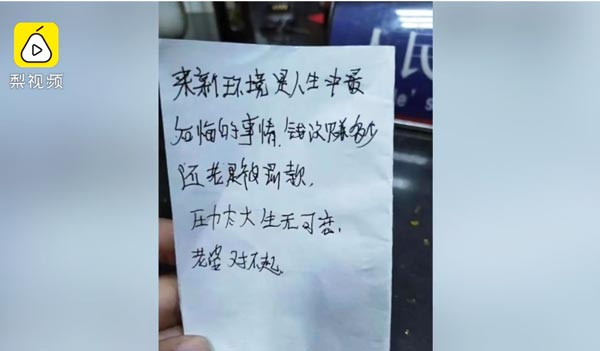 梨视频
来新环境是人生中最
后悔的事情,钱没赚多少
还老是被罚款,
压力太大生无可恋,
老婆对不起
民
e's